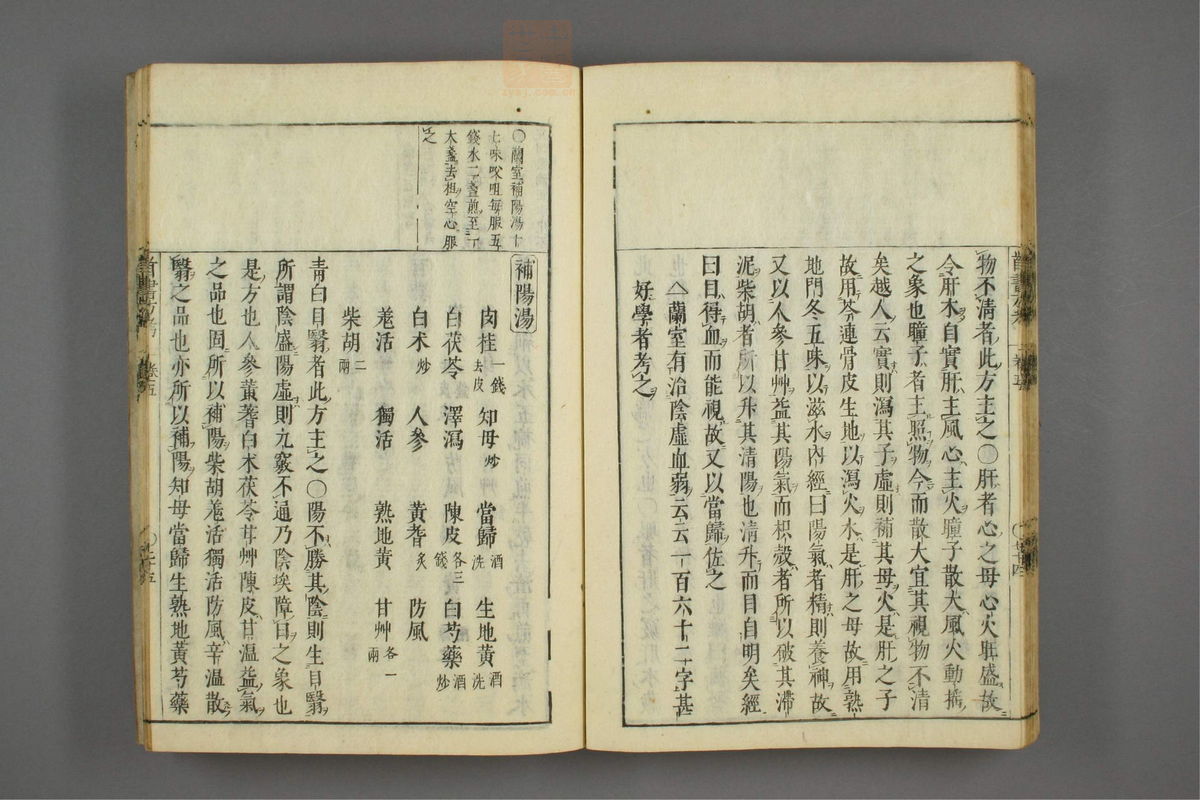 物不清者此方主之○肝者心之母心火旺盛故
令肝木自實肝主風心主火瞳子散大風火動搖
之象也瞳子者主照物今而散大宜其視物不清
矣越人云實則瀉其子虛則補其母火是肝之子
故用芩連骨皮生地以瀉火水是肝之母故用熟
地門冬五味以滋水內經曰陽氣者精則養神故
又以人參甘艸益其陽氣而枳殼者所以破其滯
泥柴胡者所以升其清陽也清升而目自明矣經
曰目得血而能視故又以當歸佐之
△蘭室有治陰虛血弱云云一百六十二字甚
好學者考之
○蘭室補陽湯十
七味㕮咀每服五
錢水二盞煎至一
大盞去柤空心服
之
補陽湯
肉桂一錢去皮 知母炒 當歸酒洗 生地黃酒洗
白茯苓 澤瀉 陳皮各三錢 白芍藥酒炒
白朮炒 人參 黃耆炙 防風
羗活 獨活 熟地黃 甘艸各一兩
柴胡二兩
青白目翳者此方主之○陽不勝其陰則生目翳
所謂陰盛陽虛則九竅不通乃陰埃障日之象也
是方也人參黃蓍白朮茯苓甘艸陳皮甘溫益氣
之品也固所以補陽柴胡羗活獨活防風辛溫散
翳之品也亦所以補陽知母當歸生熟地黃芍藥